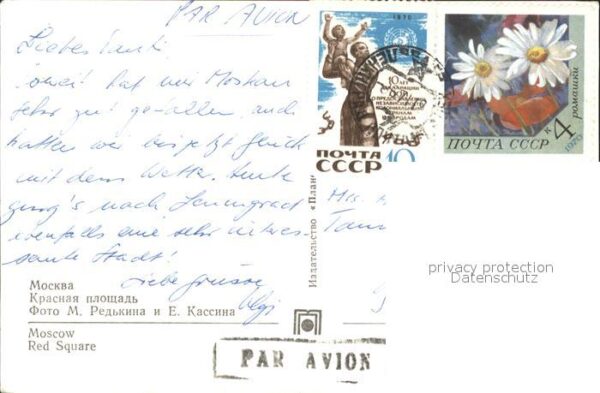 PAR AVION
Liebes Tanti
soweit hat mir Moskau
sehr zu gefallen und
hatten wir bis jetzt Glück
mit dem Wetter. Heute
ging's nach Leningrad
ebenfalls eine sehr interes-
sante Stadt!
Liebe Grüsse
1970
10 ЛЕТ
ДЕКЛАРАЦИИ
ООН
О ПРЕДОСТАВЛЕНИИ
НЕЗАВИСИМОСТИ
КОЛОНИАЛЬНЫМ
СТРАНАМ
И НАРОДАМ
ПОЧТА
СССР 10
ромашки
ПОЧТА СССР
К 4
1970
Издательство «План
Mrs.
privacy protection
Datenschutz
Москва
Красная площадь
Фото М. Редькина и Е. Кассина
Moscow
Red Square
PAR AVION